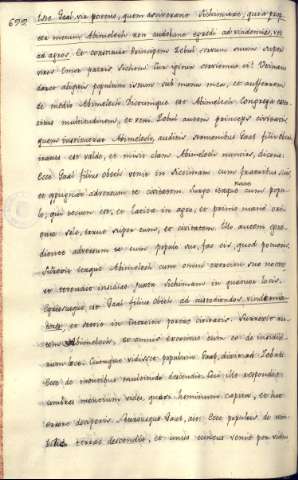 699
metu Abimelech non audebant egredi ad vindemias, vel
ad agros. Et constituit Principem Zebul
viros Emor patris Sichem? Cur igitur servimus ei? Utinam
daret aliquis populum istum sub manu mea, ut auferrem
de medio Abimelech. Dictumque est Abimelech: Congrega exer-
citus multitudinem, et veni. Zebul autem princeps civitatis,
audita sermonibus Gaal filii Obed,
iratus est valde, et misit clam Abimelech nuncios, dicens:
Ecce Gaal filius Obed venit in Siccimam cum fratribus suis,
et oppugnat adversum te civitatem. Surge itaque cum popu-
lo, qui tecum est, et latita in agro, et primo mane ori-
ente sole, irrue super civitatem. Illo autem egre-
diente adversum te cum populo suo, fac ei, quod potueris.
Surrexit itaque Abimelech cum omni exercitu suo nocte,
et tetendit insidias juxta Sichimam in quatuor locis.
Egressusque est Gaal filius Obed
et stetit in introitu portae civitatis. Surrexit au-
tem Abimelech, et omnis exercitus cum eo de insidi-
arum loco. Cumque vidisset populum Gaal, dixit ad Zebul:
Ecce de montibus multitudo descendit. Cui ille respondit:
umbras montium vides quasi hominum capita, et hoc
errore deciperis. Rursumque Gaal, ait: Ecce populus de um-
bilico terrae descendit, et unus cuneus venit per viam